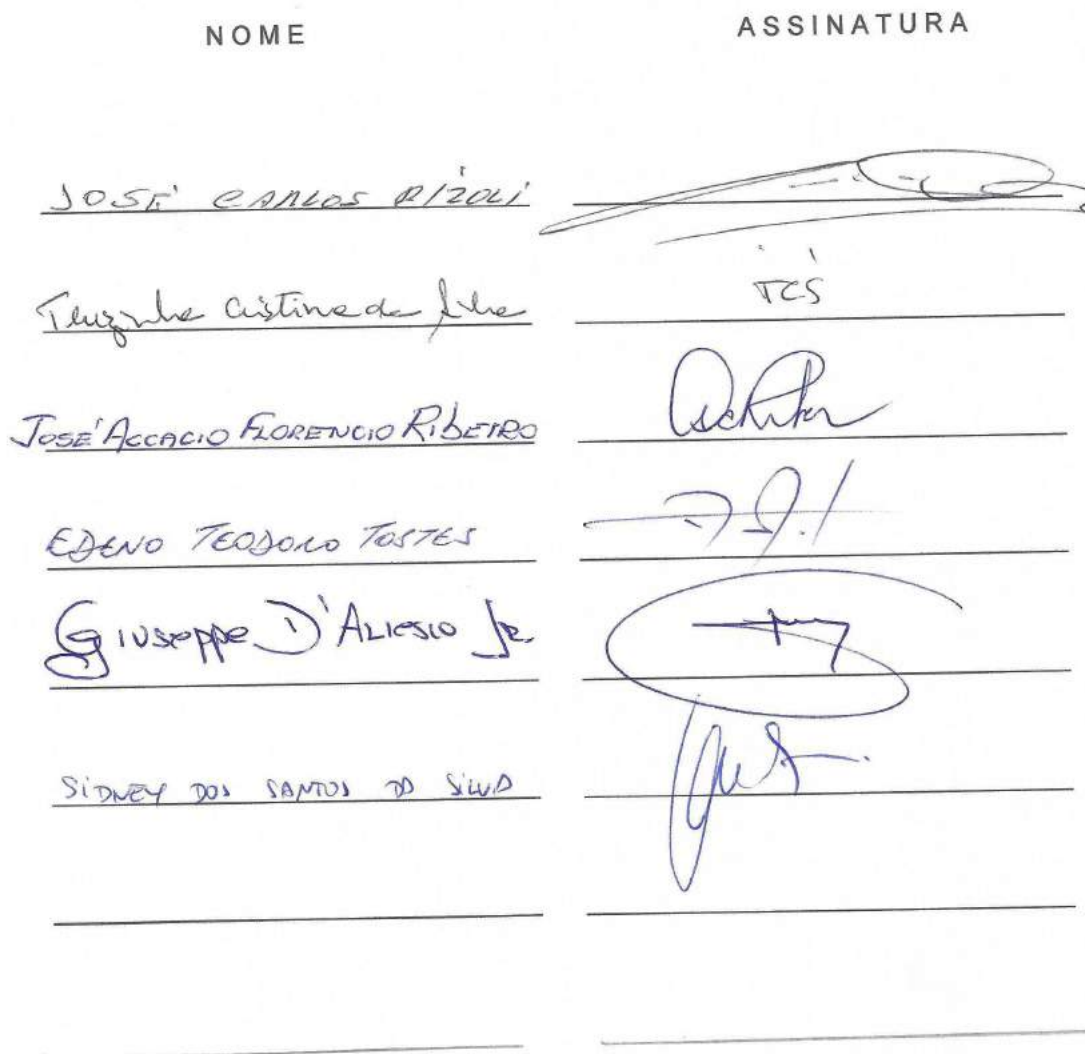 NOME ASSINATURA
JOSÉ CARLOS RIZOLI
Terezinha Cristina da Silva TCS
JOSÉ ACCACIO FLORENCIO RIBEIRO
EDENO TEODORO TOSTES
GIUSEPPE D'ALIESIO JR.
SIDNEY DOS SANTOS DA SILVA